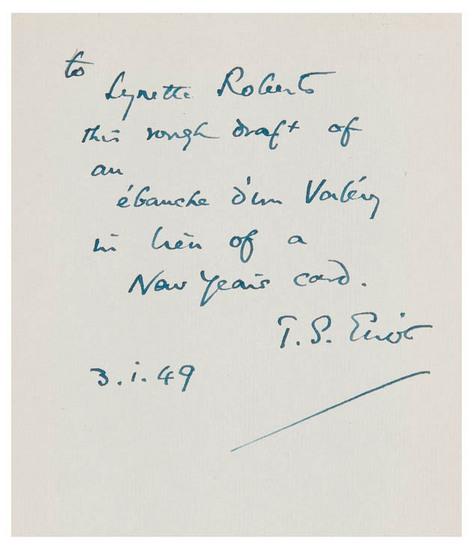 to
Lynette Roberts
this rough draft of
an
ébauche d'un Valéry
in lieu of a
New Year's card.
T. S. Eliot
3. i. 49